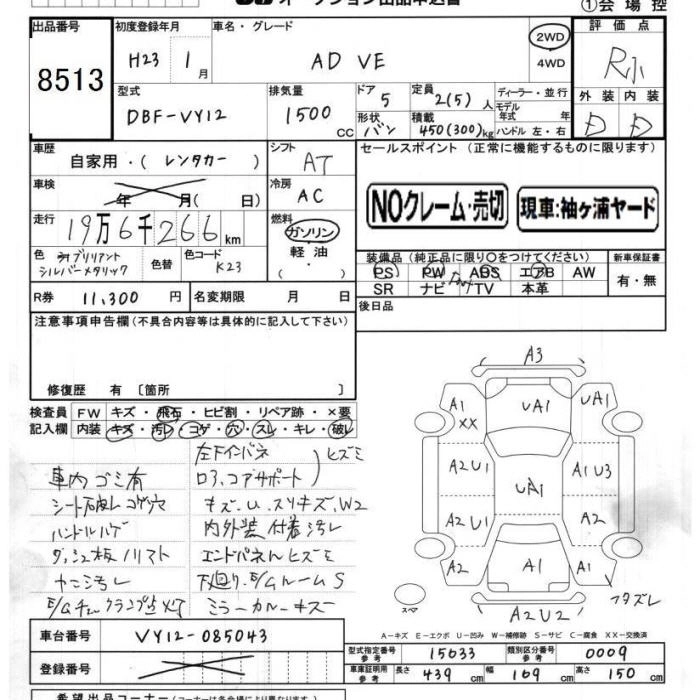 オークション出品申込書
①会場控
出品番号 8513
初度登録年月 H23年 1月
車名・グレード AD VE
2WD
4WD
評価点 R
外装 内装
D D
型式 DBF-VY12
排気量 1500 CC
ドア 5
形状 バン
定員 2(5) 人
積載 450(300) kg
ディーラー・並行
モデル年式 年式
ハンドル 左・右
車歴 自家用・(レンタカー)
シフト AT
セールスポイント (正常に機能するものに限ります)
車検 年 月( 日)
冷房 AC
NOクレーム・売切
現車:袖ヶ浦ヤード
走行 19万6千266 km
燃料 ガソリン
軽油
色 ブリリアント
シルバーメタリック
色替
色コード K23
装備品(純正品に限り○をつけてください)
新車保証書
PS PW ABS エアB AW
SR ナビ TV 本革
有・無
R券 11,300 円
名変期限 月 日
後日品
注意事項申告欄(不具合内容等は具体的に記入して下さい)
修復歴 有 [箇所 ]
検査員記入欄
FW キズ・飛石・ヒビ割・リペア跡・×要
内装 キズ・汚れ・コゲ・穴・スレ・キレ・破レ
車内ゴミ有
シート破レコゲ穴
ハンドルハゲ
ダッシュ板ノリアト
左下インバネ
コアサポート
ヒズミ
キズ、U、スリキズ、W2
内外装付着汚レ
エンドパネルヒズミ
下廻り、E/GルームS
ミラーカバーキズ
A3
A1
XX
UA1
UA1
A2U1
UA1
A1U3
A2U1
A2
A2
A1
A1
フタズレ
スペア
A2U2
A-キズ E-エクボ U-凹み W-補修跡 S-サビ C-腐食 XX-交換済
車台番号 VY12-085043
登録番号
型式指定番号 参考 15633
類別区分番号 参考 0009
車庫証明用 参考 長さ 439 cm 幅 169 cm 高さ 150 cm
希望出品コーナー